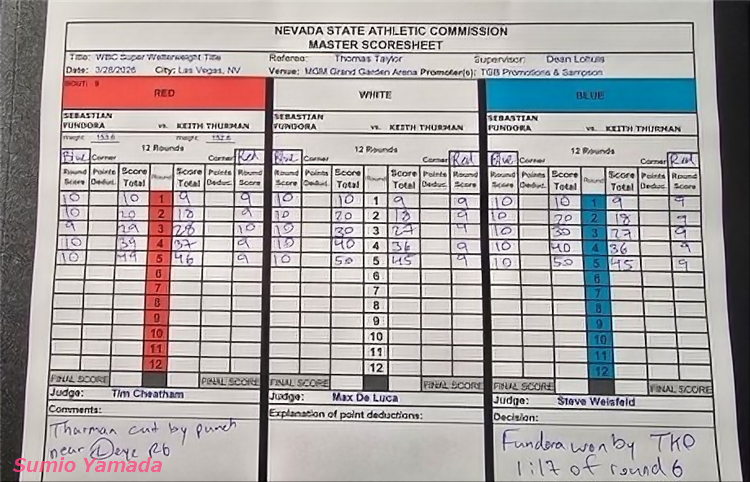 NEVADA STATE ATHLETIC COMMISSION
MASTER SCORESHEET
Title: WBC Super Welterweight Title Referee: Thomas Taylor Supervisor: Dean Lohuis
Date: 3/28/2026 City: Las Vegas, NV Venue: MGM Grand Garden Arena Promoter(s): TGB Promotions & Sampson
BOUT: 9
RED WHITE BLUE
SEBASTIAN SEBASTIAN SEBASTIAN
FUNDORA vs. KEITH THURMAN FUNDORA vs. KEITH THURMAN FUNDORA vs. KEITH THURMAN
Weight: 153.6 Weight: 152.6
12 Rounds 12 Rounds 12 Rounds
Blue Corner Corner Red Blue Corner Corner Red Blue Corner Corner Red
Round Points Score Score Points Round Round Points Score Score Points Round Round Points Score Score Points Round
Score Deduct. Total Round Total Deduc. Score Score Deduct. Total Round Total Deduc. Score Score Deduct. Total Round Total Deduc. Score
10 10 1 9 9 10 10 1 9 9 10 10 1 9 9
10 20 2 18 9 10 20 2 18 9 10 20 2 18 9
9 29 3 28 10 10 30 3 27 9 10 30 3 27 9
10 39 4 37 9 10 40 4 36 9 10 40 4 36 9
10 49 5 46 9 10 50 5 45 9 10 50 5 45 9
6 6 6
7 7 7
8 8 8
9 9 9
10 10 10
11 11 11
12 12 12
FINAL SCORE FINAL SCORE FINAL SCORE FINAL SCORE FINAL SCORE FINAL SCORE
Judge: Tim Cheatham Judge: Max De Luca Judge: Steve Weisfeld
Comments: Explanation of point deductions: Decision:
Thurman cut by punch Fundora won by TKO
near L eye R6 1:17 of round 6
Sumio Yamada